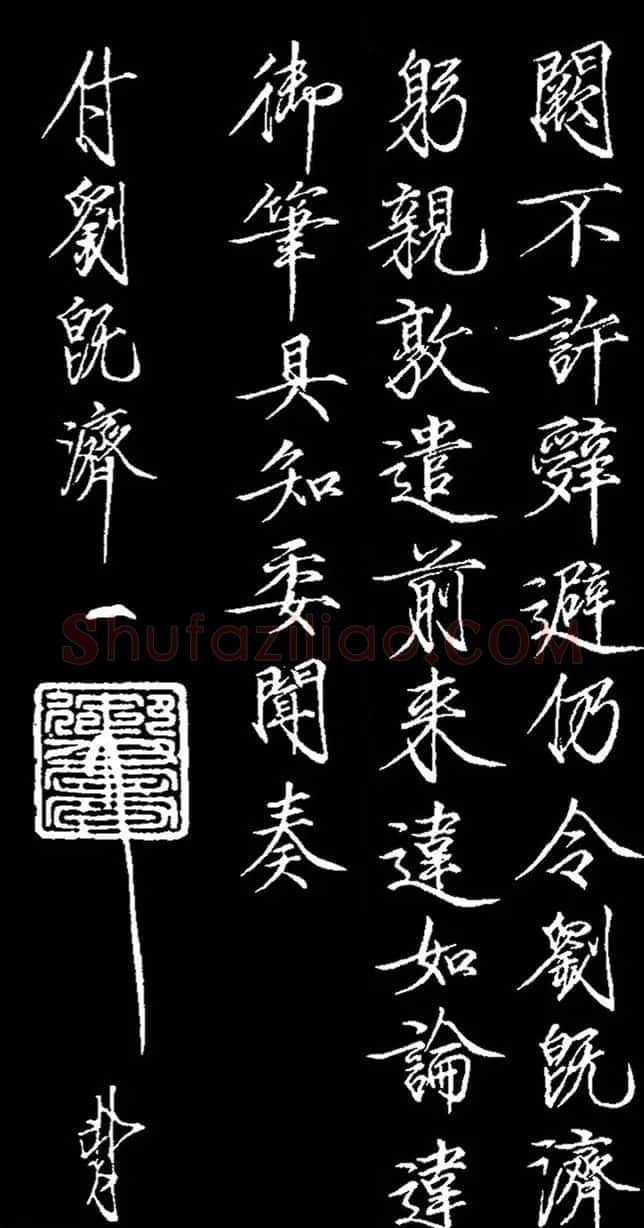 闕不許辤避仍令劉旣濟
躬親敦遣前来違如論違
御筆具知委聞奏
付劉旣濟
Shufaziliao.COM